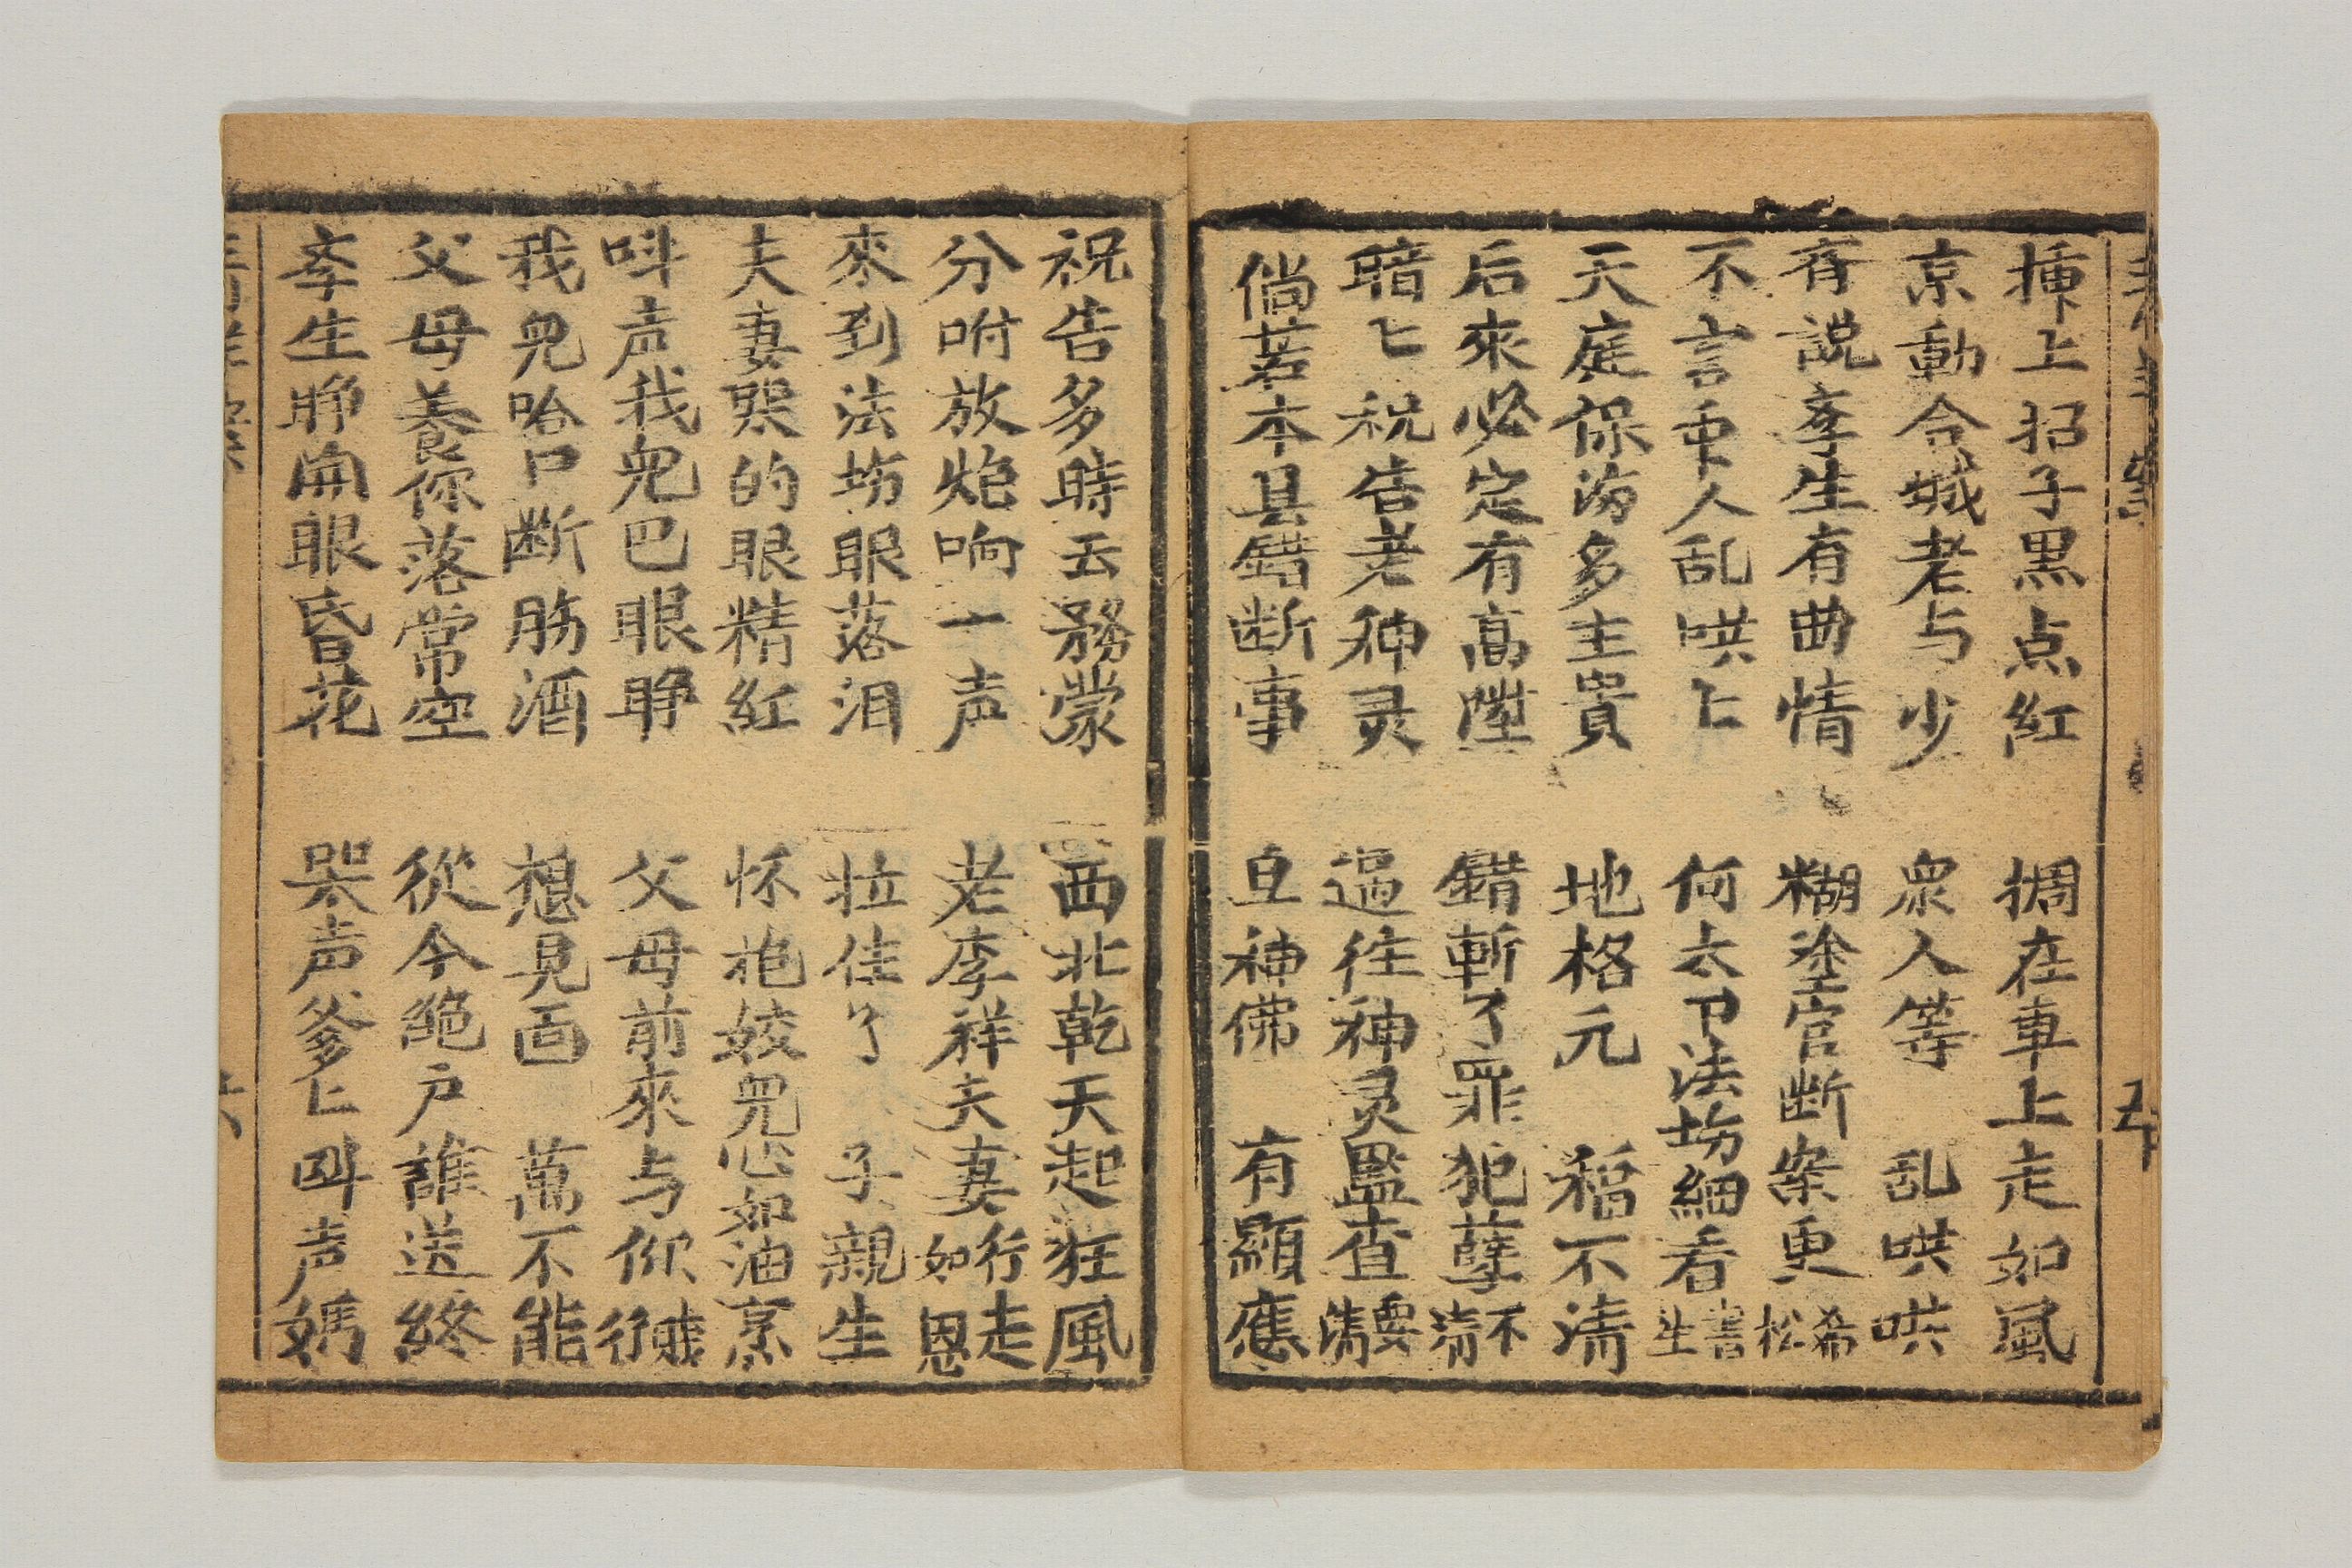 揷上招子黒点紅　捆在車上走如風
京動合城老与少　衆人等　乱哄哄
齐説李生有曲情　糊塗官断案更希松
不言重人乱哄〻　何太尹法塲細看書生
天庭保滿多主貴　地格元　稱不清
后來必定有高陞　錯斬了罪犯孽不清
暗〻祝告老神灵　過往神灵監查要清
倘若本县錯断事　自神佛　有顯應
祝告多時云霧蒙　西北乾天起狂風
分咐放炮响一声　老李祥夫妻行走如恩
來到法塲眼落泪　拉住了　子親生
夫妻哭的眼精紅　怀抱姣兒心如油烹
呌声我兒巴眼睁　父母前來与你餞行
我兒哈口断肠酒　想見面　萬不能
父母養你落常空　從今絕户誰送終
李生睁開眼昏花　哭声爹〻呌声媽
五
六